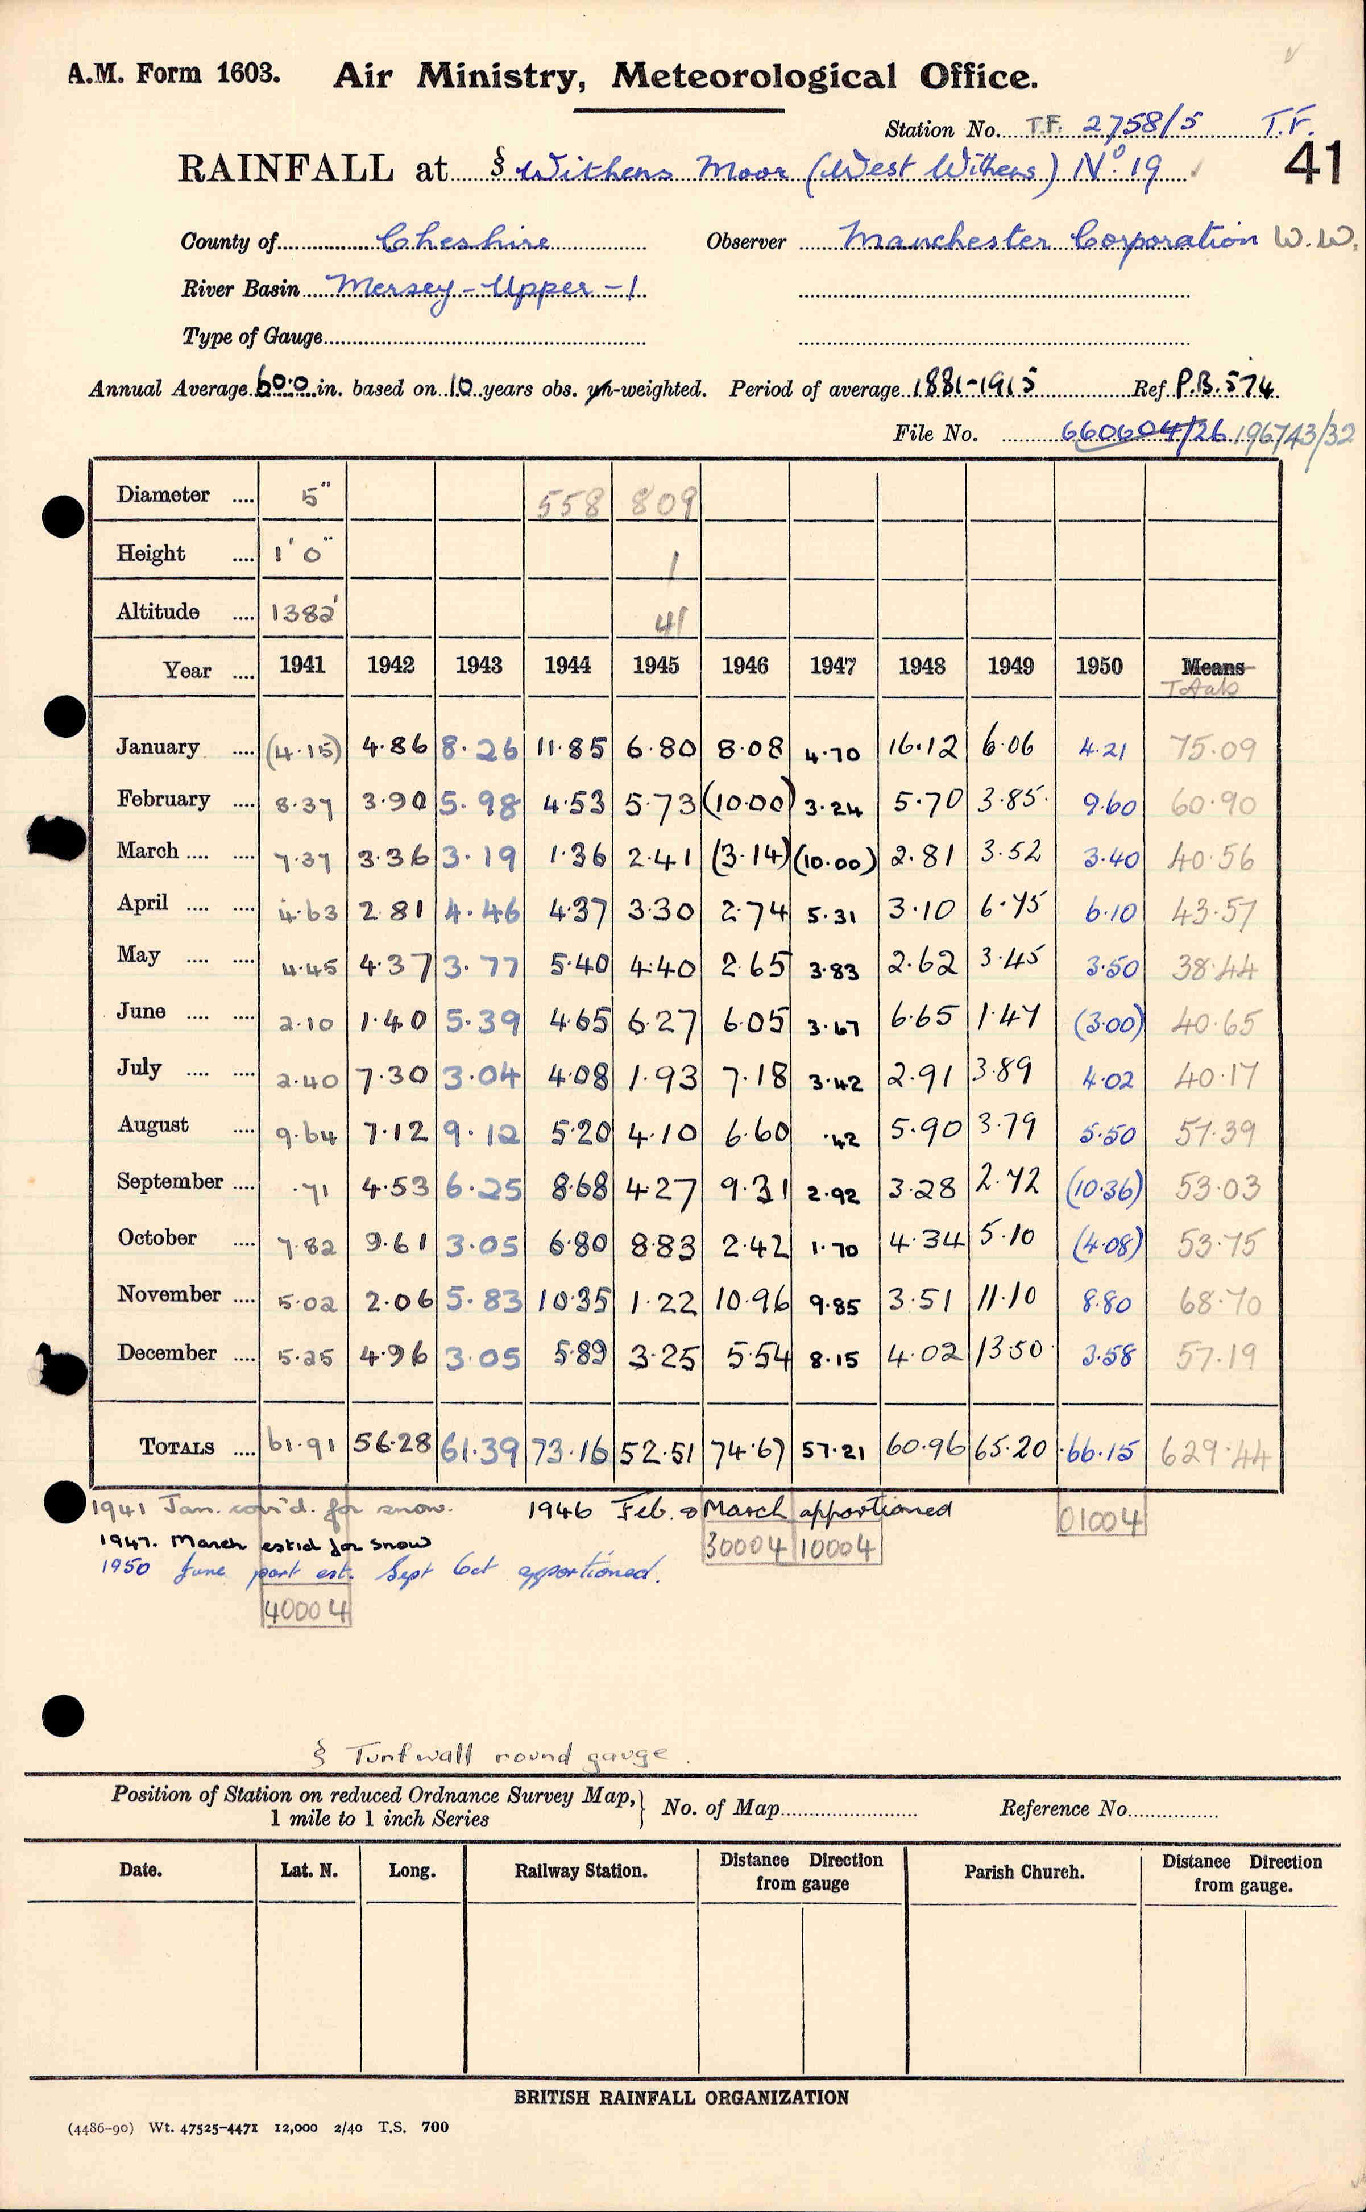 A.M. Form 1603. Air Ministry, Meteorological Office.
Station No. T.F. 2758/5 T.F.
RAINFALL at § Withens Moor (West Withens) No. 19 41
County of Cheshire Observer Manchester Corporation W.W.
River Basin Mersey-Upper-1
Type of Gauge
Annual Average 60.0 in. based on 10 years obs. un-weighted. Period of average 1881-1915 Ref P.B. 574
File No. 660604/26 196743/32
Diameter .... 5" 558 809
Height .... 1' 0" 1
Altitude .... 1382' 41
Year .... 1941 1942 1943 1944 1945 1946 1947 1948 1949 1950 Means
Totals
January .... (4.15) 4.86 8.26 11.85 6.80 8.08 4.70 16.12 6.06 4.21 75.09
February .... 8.37 3.90 5.98 4.53 5.73 (10.00) 3.24 5.70 3.85 9.60 60.90
March .... .... 7.37 3.36 3.19 1.36 2.41 (3.14) (10.00) 2.81 3.52 3.40 40.56
April .... .... 4.63 2.81 4.46 4.37 3.30 2.74 5.31 3.10 6.75 6.10 43.57
May .... .... 4.45 4.37 3.77 5.40 4.40 2.65 3.83 2.62 3.45 3.50 38.44
June .... .... 2.10 1.40 5.39 4.65 6.27 6.05 3.67 6.65 1.47 (3.00) 40.65
July .... .... 2.40 7.30 3.04 4.08 1.93 7.18 3.42 2.91 3.89 4.02 40.17
August .... 9.64 7.12 9.12 5.20 4.10 6.60 .42 5.90 3.79 5.50 57.39
September .... .71 4.53 6.25 8.68 4.27 9.31 2.92 3.28 2.72 (10.36) 53.03
October .... 7.82 9.61 3.05 6.80 8.83 2.42 1.70 4.34 5.10 (4.08) 53.75
November .... 5.02 2.06 5.83 10.35 1.22 10.96 9.85 3.51 11.10 8.80 68.70
December .... 5.25 4.96 3.05 5.89 3.25 5.54 8.15 4.02 13.50 3.58 57.19
TOTALS .... 61.91 56.28 61.39 73.16 52.51 74.67 57.21 60.96 65.20 66.15 629.44
1941 Jan. con'd. for snow. 1946 Feb. & March apportioned 01004
1947. March estid for snow 30004 10004
1950 June part est. Sept Oct apportioned.
40004
§ Turf wall round gauge.
Position of Station on reduced Ordnance Survey Map, } No. of Map Reference No.
1 mile to 1 inch Series
Date. Lat. N. Long. Railway Station. Distance Direction from gauge Parish Church. Distance Direction from gauge.
BRITISH RAINFALL ORGANIZATION
(4486-90) Wt. 47525-4471 12,000 2/40 T.S. 700